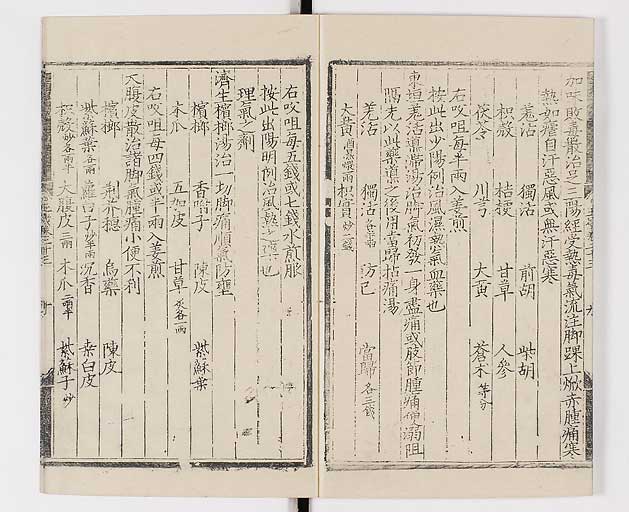 加味敗毒散治足三陽經受熱毒氣流注脚踝上焮赤腫痛寒
熱如瘧自汗惡風或無汗惡寒
羗活 獨活 前胡 柴胡
枳殼 桔梗 甘草 人參
茯苓 川芎 大黃 蒼朮 等分
右㕮咀每半兩入姜煎
按此出少陽例治風濕熱氣血藥也
東垣羗活導滯湯治脚氣初發一身盡痛或肢節腫痛便溺阻
隔先以此藥導之後用當歸拈痛湯
羗活 獨活 各半兩 防已 當歸 各三錢
大黃 酒煨一兩 枳實 炒二錢
右㕮咀每五錢或七錢水煎服
按此出陽明例治風熱之藥也
理氣之劑
濟生檳榔湯治一切脚痛順氣防壅
檳榔 香附子 陳皮 紫蘇葉
木瓜 五加皮 甘草 炙各一兩
右㕮咀每四錢或半兩入姜煎
大腹皮散治諸脚氣腫痛小便不利
檳榔 荊芥穗 烏藥 陳皮
紫蘇葉 各一兩 蘿蔔子 炒半兩 沉香 桑白皮
枳殼 炒各一兩半 大腹皮 三兩 木瓜 二兩半 紫蘇子 炒